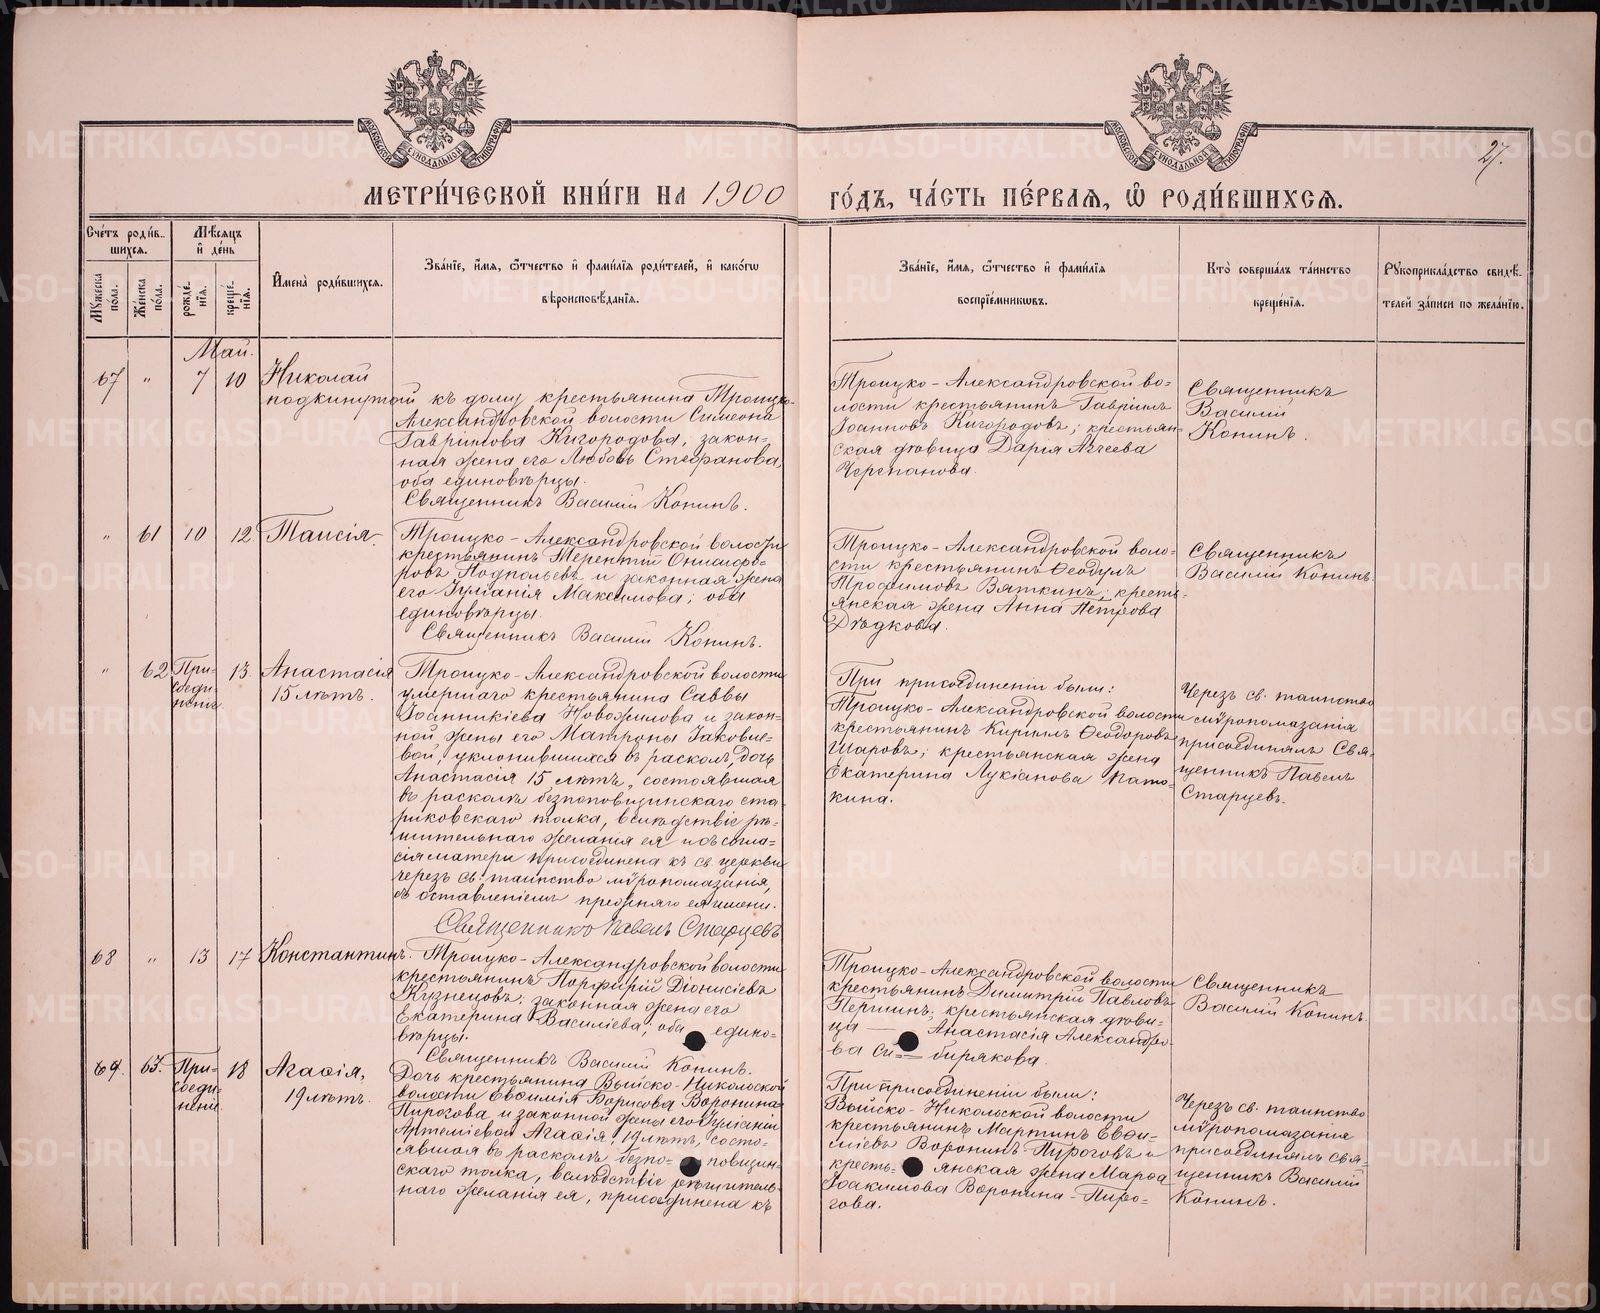 27.
МОСКОВСКОЙ СѴНОДАЛЬНОЙ ТИПОГРАФІИ
МОСКОВСКОЙ СѴНОДАЛЬНОЙ ТИПОГРАФІИ
МЕТРИ́ЧЕСКОЙ КНИ́ГИ НА 1900 ГО́ДЪ, ЧА́СТЬ ПЕ́РВАЯ, Ѡ РОДИ́ВШИХСЯ.
Сче́тъ роди́в-
шихся.
Мѣ́сяцъ
и де́нь
Мужеска по́ла.
Же́нска по́ла.
рожде́нія.
креще́нія.
Имена̀ роди́вшихся.
Зва́ніе, и́мя, ѻ҆́тчество и фами́лія роди́телей, и како́гѡ
вѣроисповѣ́данія.
Зва́ніе, и́мя, ѻ҆́тчество и фами́лія
воспріе́мниковъ.
Кто̀ соверша́лъ та́инство
креще́нія.
Рукоприкла́дство свидѣ́-
телей за́писи по жела́нію.
Май.
67 " 7 10 Николай
подкинутый къ дому крестьянина Троицко-
Александровской волости Симеона
Гавриилова Кигородова, закон-
ная жена его Любовь Стефанова,
оба единовѣрцы.
Священникъ Василій Конинъ.
Троицко-Александровской во-
лости крестьянинъ Гавріилъ
Іоанновъ Кигородовъ; крестьян-
ская дѣвица Дарія
Черепанова.
Священникъ
Василій
Конинъ.
" 61 10 12 Таисія.
Троицко-Александровской волости
крестьянинъ Терентій Онисифо-
ровъ и законная жена
его Іуліанія Максимова; оба
единовѣрцы.
Священникъ Василій Конинъ.
Троицко-Александровской воло-
сти крестьянинъ Ѳеодулъ
Трофимовъ Вяткинъ; кресть-
янская жена Анна Петрова
Дѣдкова.
Священникъ
Василій Конинъ.
" 62 При-
соеди-
ненъ. 13 Анастасія
15 лѣтъ.
Троицко-Александровской волости
умершаго крестьянина Саввы
Іоанникіева Новожилова и закон-
ной жены его Матроны Іаковле-
вой, уклонившихся въ расколъ, дочь
Анастасія 15 лѣтъ, состоявшая
въ расколѣ безпоповщинскаго ста-
риковскаго толка, вслѣдствіе рѣ-
шительнаго желанія ея и съ согла-
сія матери присоединена къ св. церкви
чрезъ св. таинство мѵропомазанія,
съ оставленіемъ прежняго ея имени.
Священникъ Павелъ Старцевъ
При присоединеніи были:
Троицко-Александровской волости
крестьянинъ Кириллъ Ѳеодоровъ
Шаровъ; крестьянская жена
Екатерина Лукіанова
кина.
Чрезъ св. таинство
мѵропомазанія
присоединялъ Свя-
щенникъ Павелъ
Старцевъ.
68 " 13 17 Константинъ.
Троицко-Александровской волости
крестьянинъ Порфирій Діонисіевъ
Кузнецовъ; законная жена его
Екатерина Василіева; оба едино-
вѣрцы.
Священникъ Василій Конинъ.
Троицко-Александровской волости
крестьянинъ Димитрій Павловъ
Першинъ; крестьянская дѣви-
ца — Анастасія Александро-
ва Си-бирякова
Священникъ
Василій Конинъ.
69. 63. При-
соеди-
неніе 18 Агаѳія,
19 лѣтъ.
Дочь крестьянина Выйско-Никольской
волости Евѳимія Борисова Воронина-
Пирогова и законной жены его Іуліаніи
Артеміевой Агаѳія, 19 лѣтъ, состо-
явшая въ расколѣ безпо-повщин-
скаго толка, вслѣдствіе рѣшитель-
наго желанія ея, присоединена къ
При присоединеніи были:
Выйско-Никольской волости
крестьянинъ Мартинъ Евѳи-
міевъ Воронинъ-Пироговъ и
кресть-янская жена Марѳа
Іоакимова Воронина-Пиро-
гова.
Чрезъ св. таинство
мѵропомазанія
присоединялъ свя-
щенникъ Василій
Конинъ.
METRIKI.GASO-URAL.RU